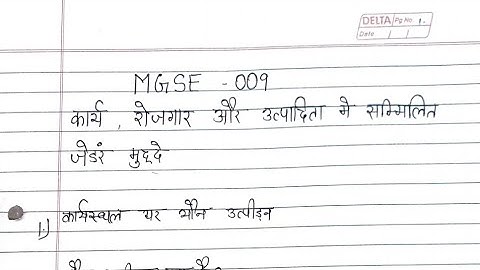 DELTA Pg No. 1.
Date / /
MGSE - 009
कार्य , रोजगार और उत्पादिता मे सम्मिलित
जेडरं मुद्दे
1.) कार्यस्थल पर यौन उत्पीड़न